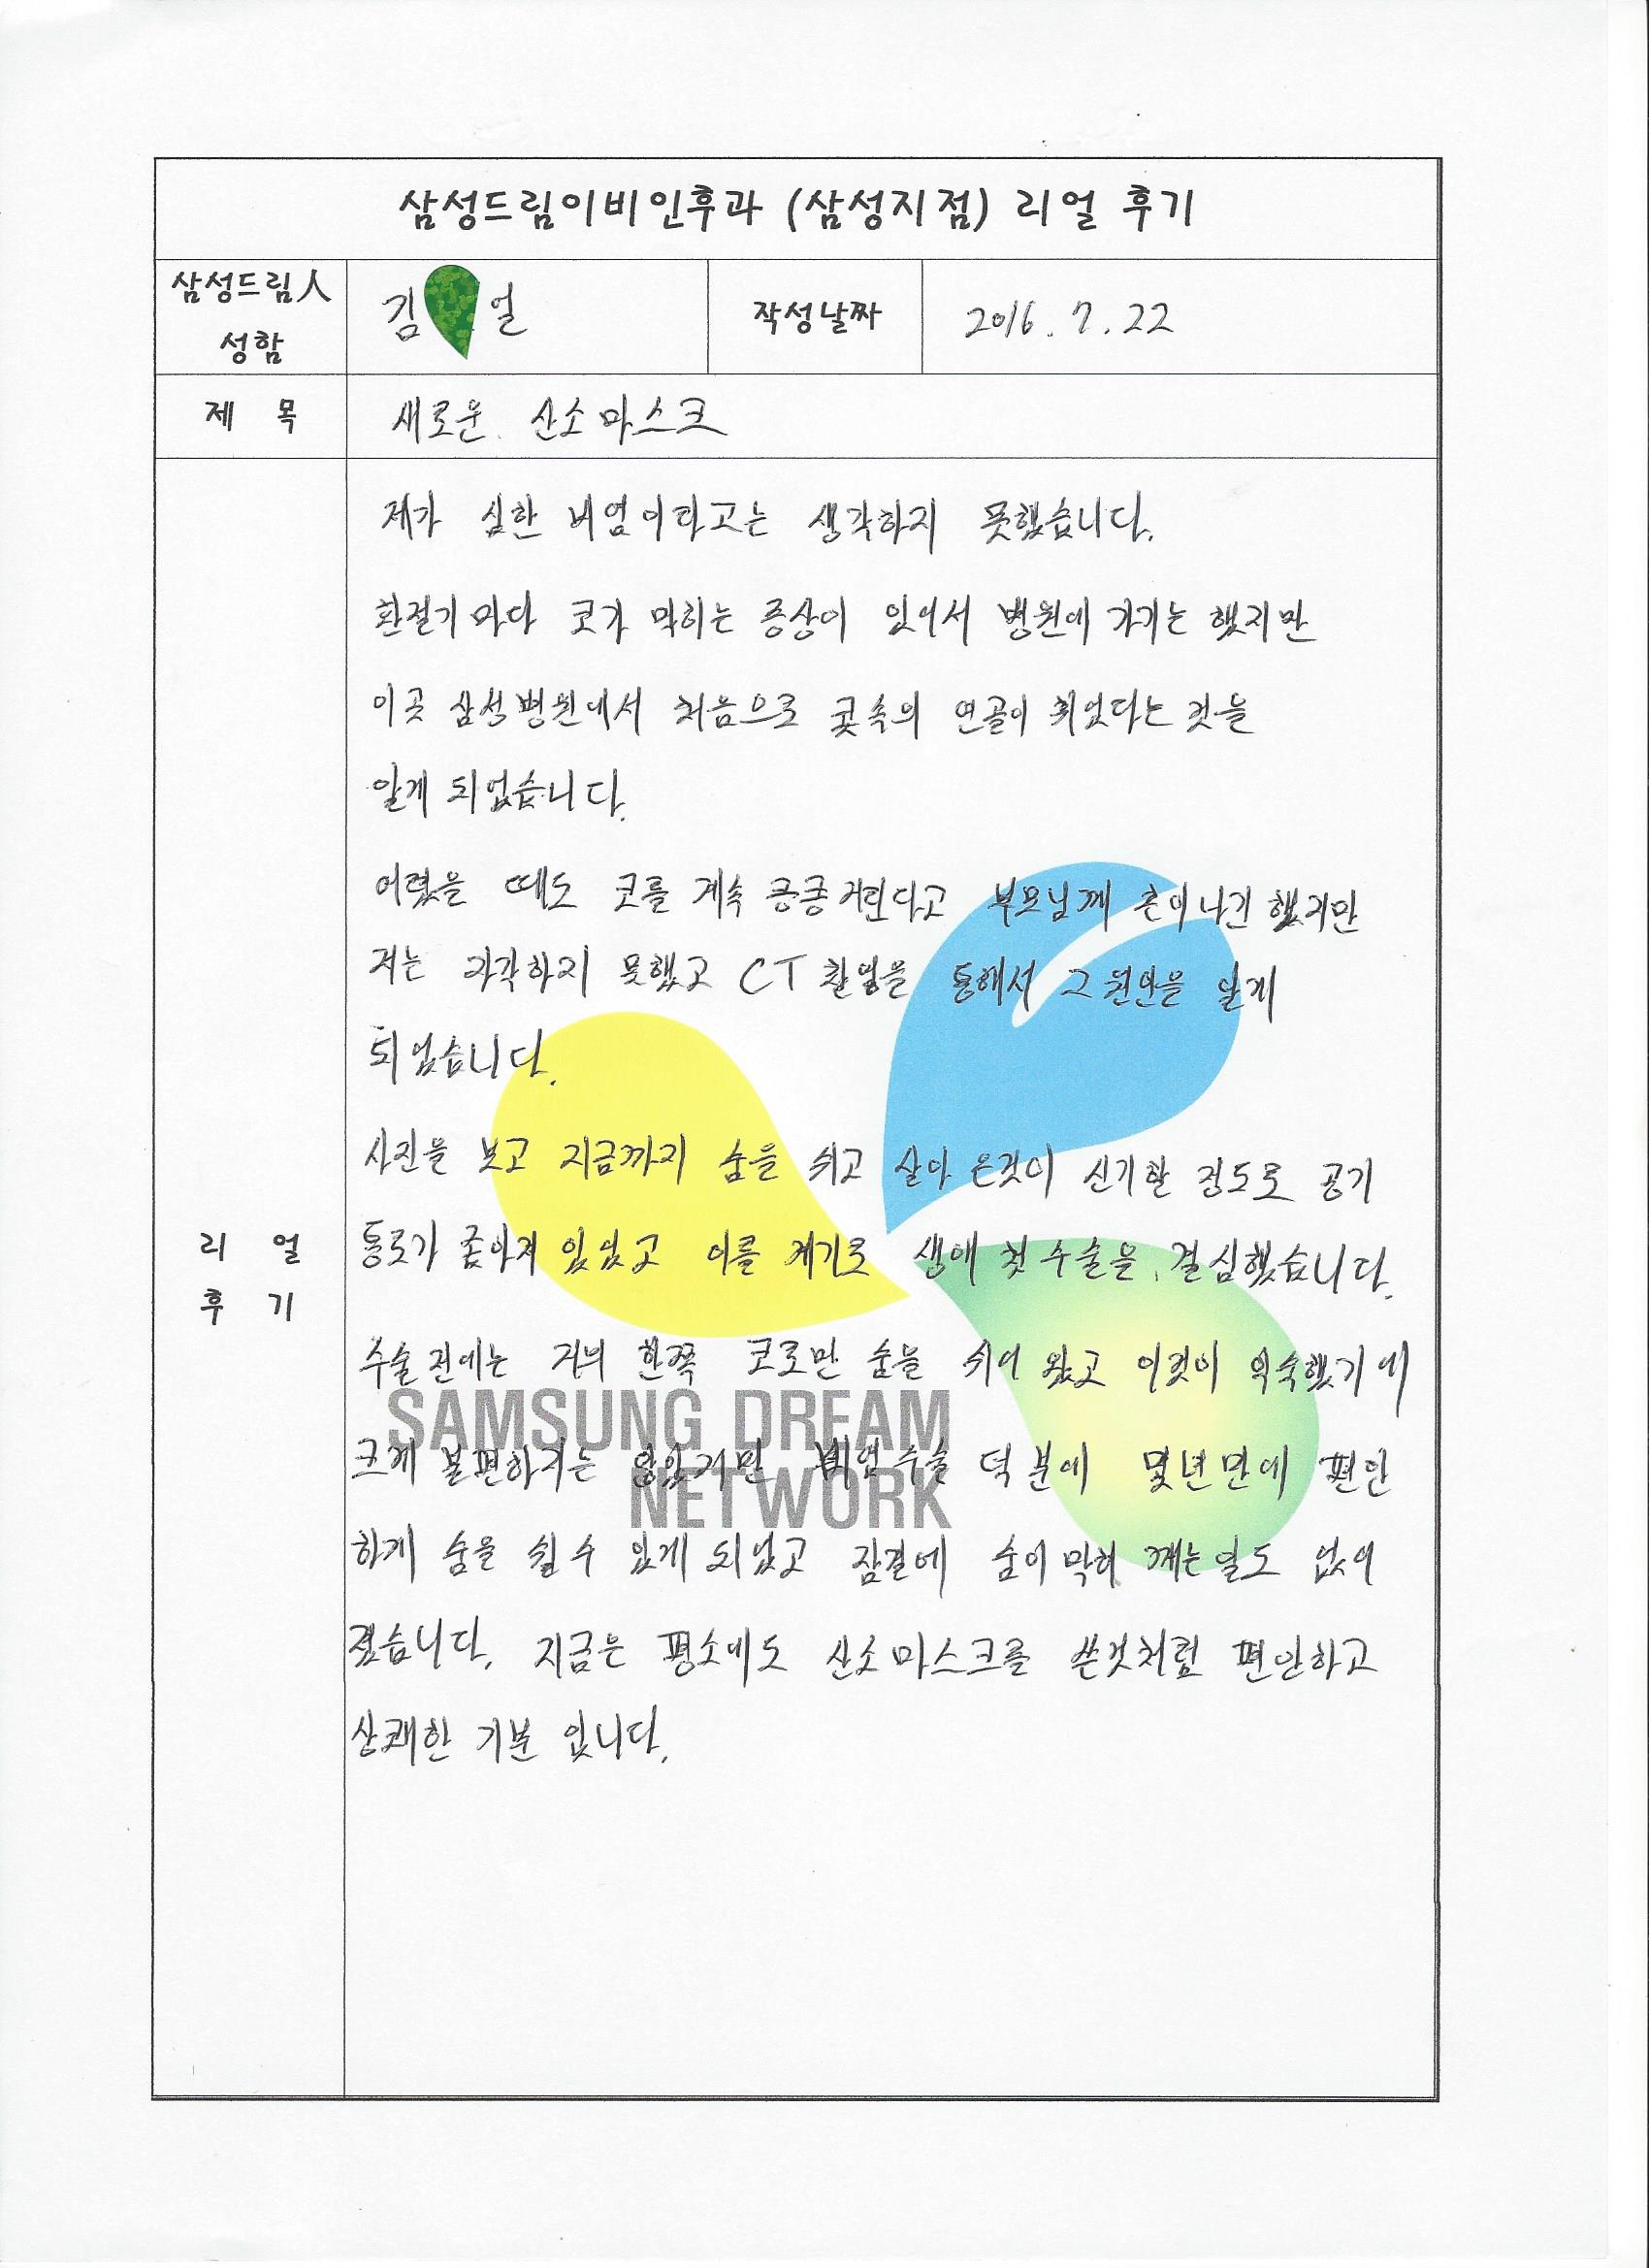 삼성드림이비인후과 (삼성지점) 리얼 후기
삼성드림人
성함
김 얼
작성날짜
2016. 7. 22
제 목
새로운 산소마스크
리 얼
후 기
제가 심한 비염이라고는 생각하지 못했습니다.
환절기 마다 코가 막히는 증상이 있어서 병원에 가기는 했지만
이곳 삼성병원에서 처음으로 콧속의 연골이 휘었다는 것을
알게 되었습니다.
어렸을 때도 코를 계속 킁킁거린다고 부모님께 혼이 나긴 했지만
저는 자각하지 못했고 CT 촬영을 통해서 그 원인을 알게
되었습니다.
사진을 보고 지금까지 숨을 쉬고 살아 온것이 신기할 정도로 공기
통로가 좁아져 있었고 이를 계기로 생애 첫 수술을 결심했습니다.
수술 전에는 거의 한쪽 코로만 숨을 쉬어 왔고 이것이 익숙했기에
크게 불편하지는 않았지만 비염수술 덕분에 몇년만에 편안
하게 숨을 쉴 수 있게 되었고 잠결에 숨이 막혀 깨는일도 없어
졌습니다. 지금은 평소에도 산소마스크를 쓴것처럼 편안하고
상쾌한 기분 입니다.
SAMSUNG DREAM
NETWORK